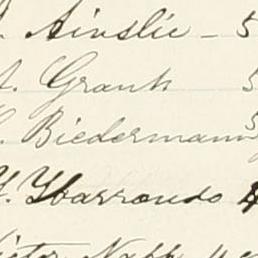 . Ainslie - 5
. Grant 5
. Biedermann 5
Y. Ybarrondo 4